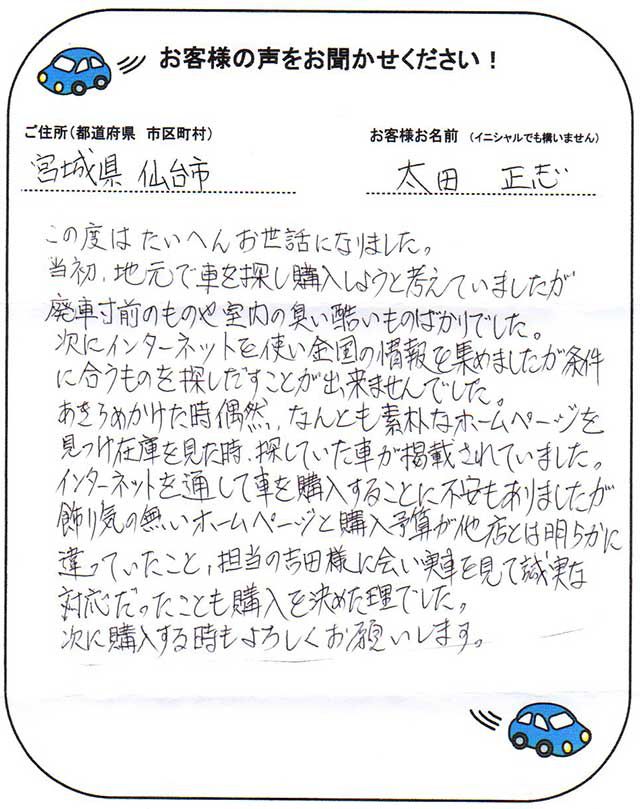 お客様の声をお聞かせください！
ご住所（都道府県　市区町村）
お客様お名前（イニシャルでも構いません）
宮城県 仙台市
太田　正志
この度は たいへんお世話になりました。
当初、地元で車を探し購入しようと考えていましたが
廃車寸前のものや室内の臭い酷いものばかりでした。
次にインターネットを使い全国の情報を集めましたが条件
に合うものを探しだすことが出来ませんでした。
あきらめかけた時偶然、なんとも素朴なホームページを
見つけ在庫を見た時、探していた車が掲載されていました。
インターネットを通して車を購入することに不安もありましたが
飾り気の無いホームページと購入予算が他店とは明らかに
違っていたこと、担当の吉田様に会い実車を見て誠実な
対応だったことも購入を決めた理でした。
次に購入する時もよろしくお願いします。